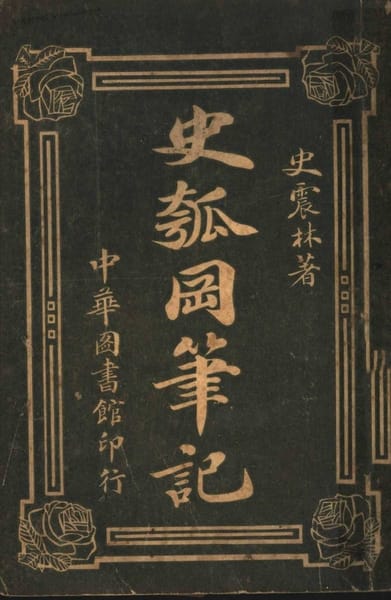 史震林著
史瓠岡筆記
中華圖書館印行